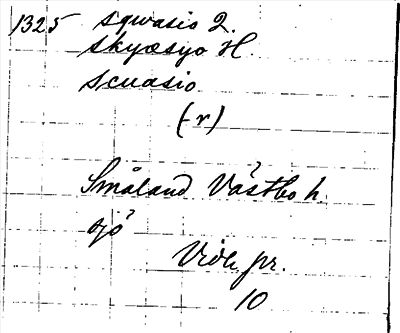 1325 sqwasio 2.
skyæsyo H.
scuasio
(-r)
Småland Västbo h.
sjö?
Vidk pr.
10